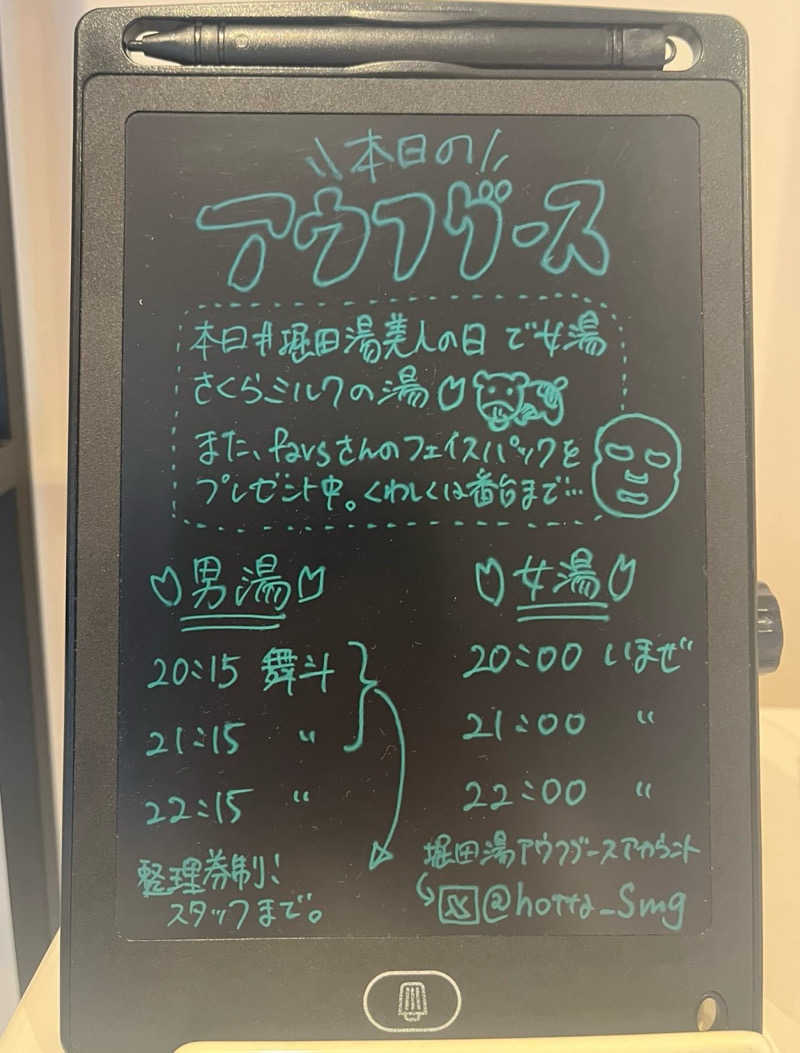 本日の
アウフグース
本日#堀田湯美人の日 で女湯
さくらミルクの湯
また、favsさんのフェイスパックを
プレゼント中。くわしくは番台まで…
男湯
20:15 舞斗
21:15 〃
22:15 〃
整理券制!
スタッフまで。
女湯
20:00 いまぜ
21:00 〃
22:00 〃
堀田湯アウフグースアカウント
X@hotta_Smg